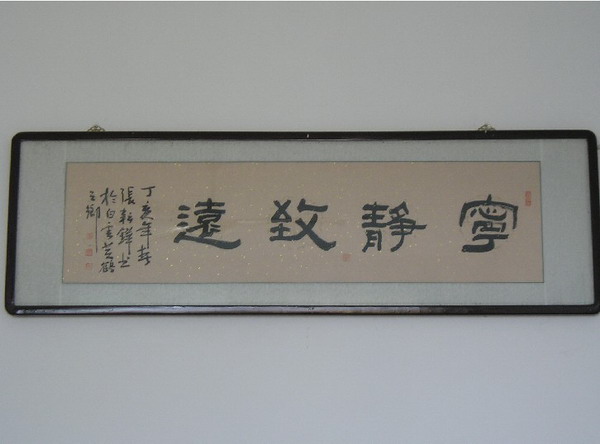 寧靜致遠
丁亥年春
張新鐸書
於白雲黃鶴
之鄉